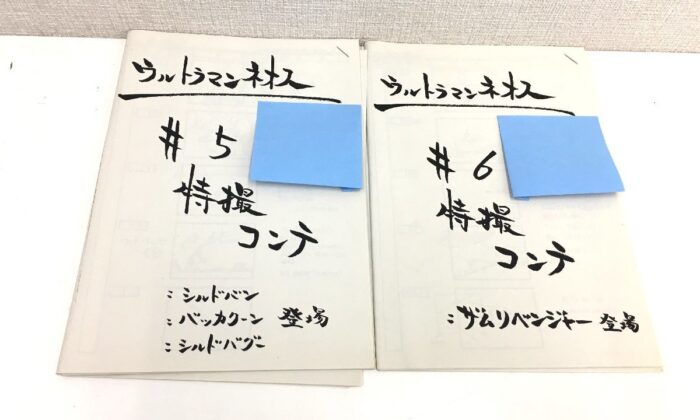 ウルトラマンネオス
# 5
特撮
コンテ
: シルドバン
: バッカクーン 登場
: シルドバグー
ウルトラマンネオス
# 6
特撮
コンテ
: ザムリベンジャー 登場